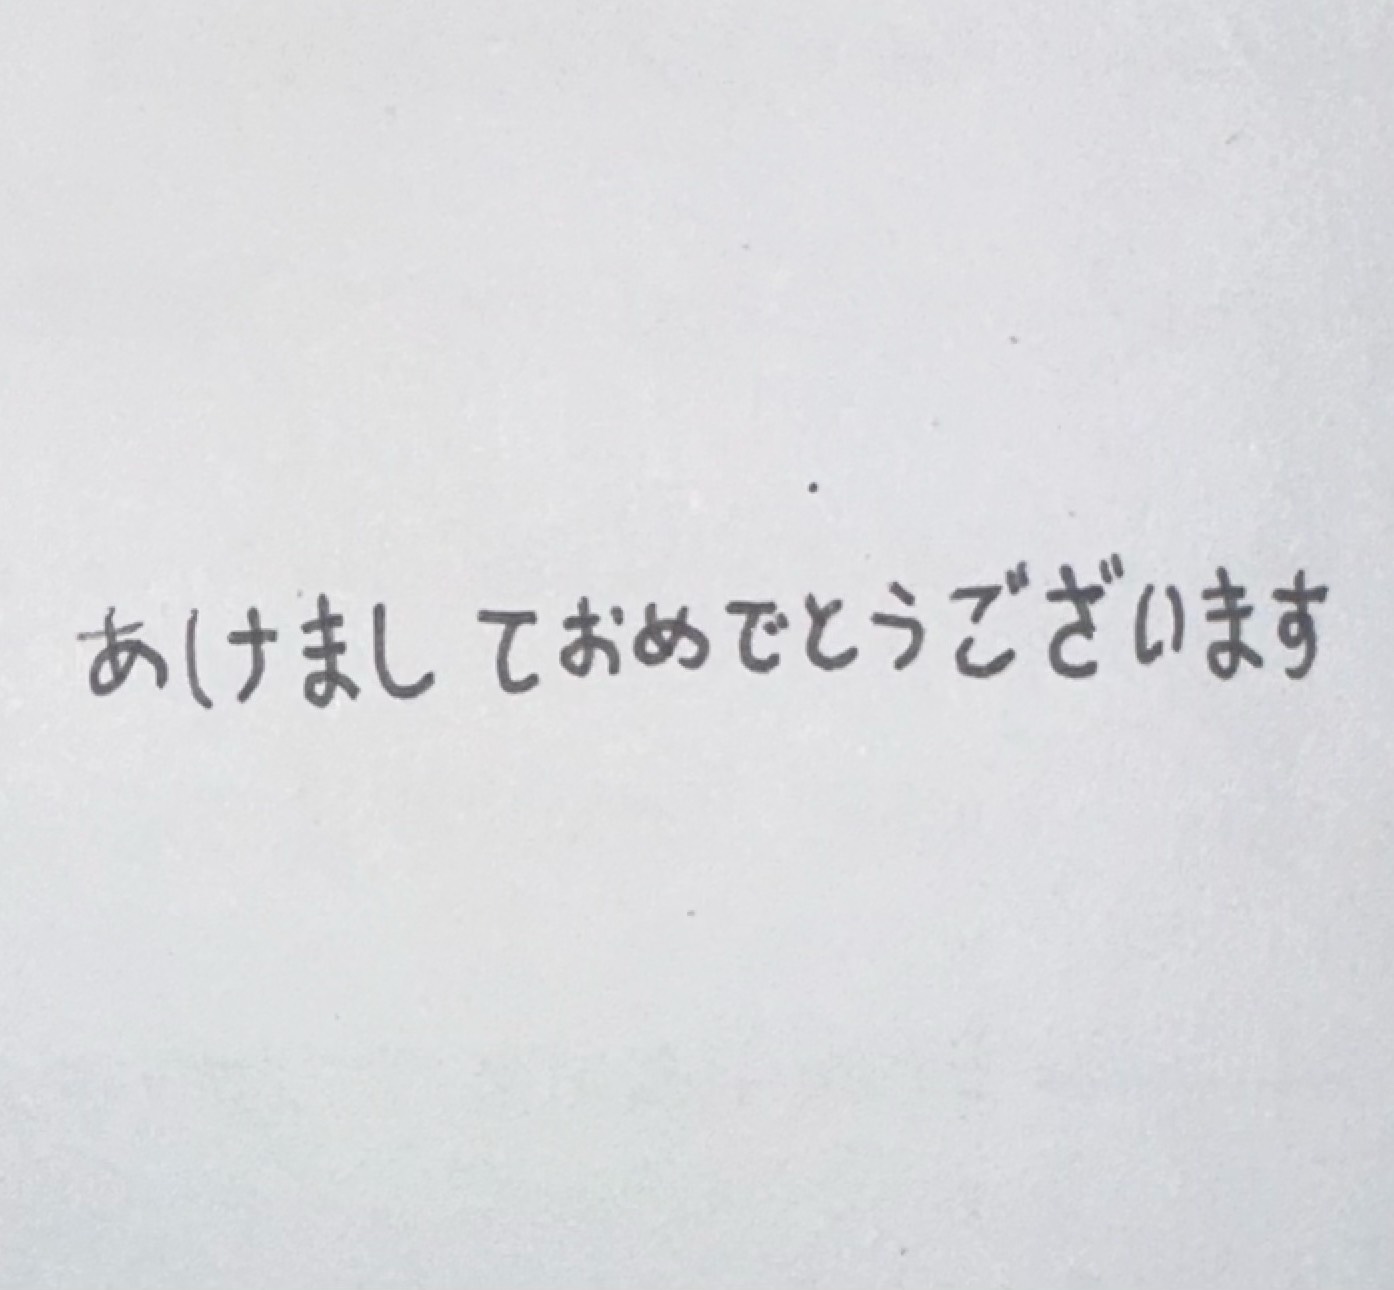 あけまし ておめでとうございます